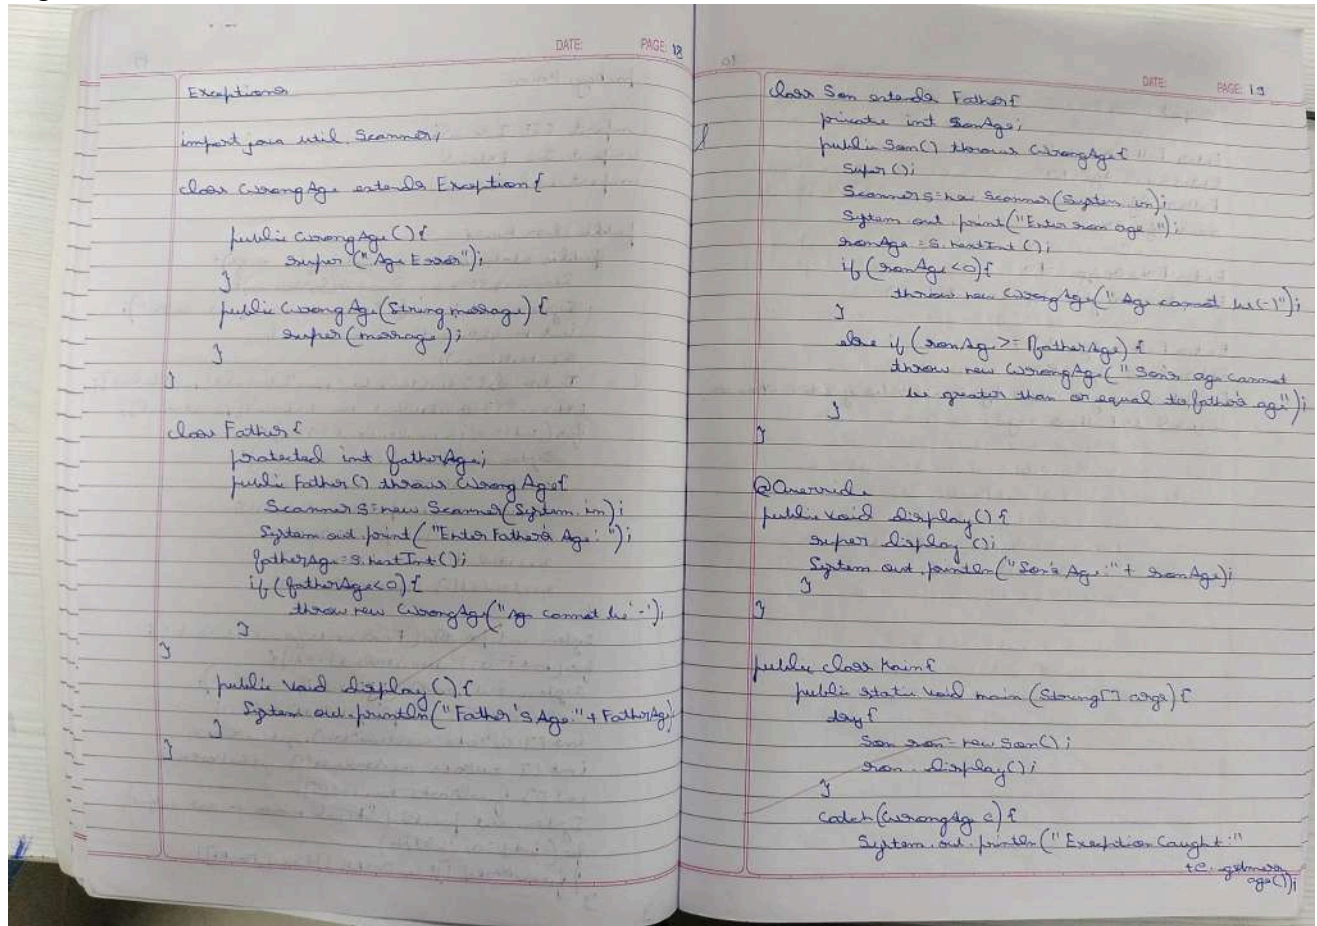 DATE: PAGE: 18
Exceptions
import java util. Scanner;
class WrongAge extends Exception{
public WrongAge(){
super ("Age Error");
}
public WrongAge(String message) {
super (message);
}
}
class Father {
protected int fatherAge;
public Father () throws WrongAge{
Scanner s=new Scanner(System. in);
System.out.print("Enter Father's Age: ");
fatherAge=s.nextInt();
if(fatherAge<0){
throw new WrongAge("Age cannot be '-');
}
}
public void display(){
System.out.println("Father's Age:"+ FatherAge)
}
}
DATE: PAGE: 19
class Son extends Father{
private int sonAge;
public Son() throws WrongAge{
Super ();
Scanner s=new Scanner(System in);
System out print("Enter son age ");
sonAge =s.nextInt();
if (sonAge <0){
throw new WrongAge("Age cannot be(-)");
}
else if (sonAge >= fatherAge) {
throw new WrongAge("Son's age cannot
be greater than or equal to father's age");
}
}
@Override
public void display(){
super display ();
System out.println("Son's Age:"+ sonAge);
}
}
public class Main{
public static void main (String[] args) {
try{
Son son=new Son();
son. display();
}
catch(WrongAge e) {
System.out.println("Exception Caught:"
+e. getmess
age());